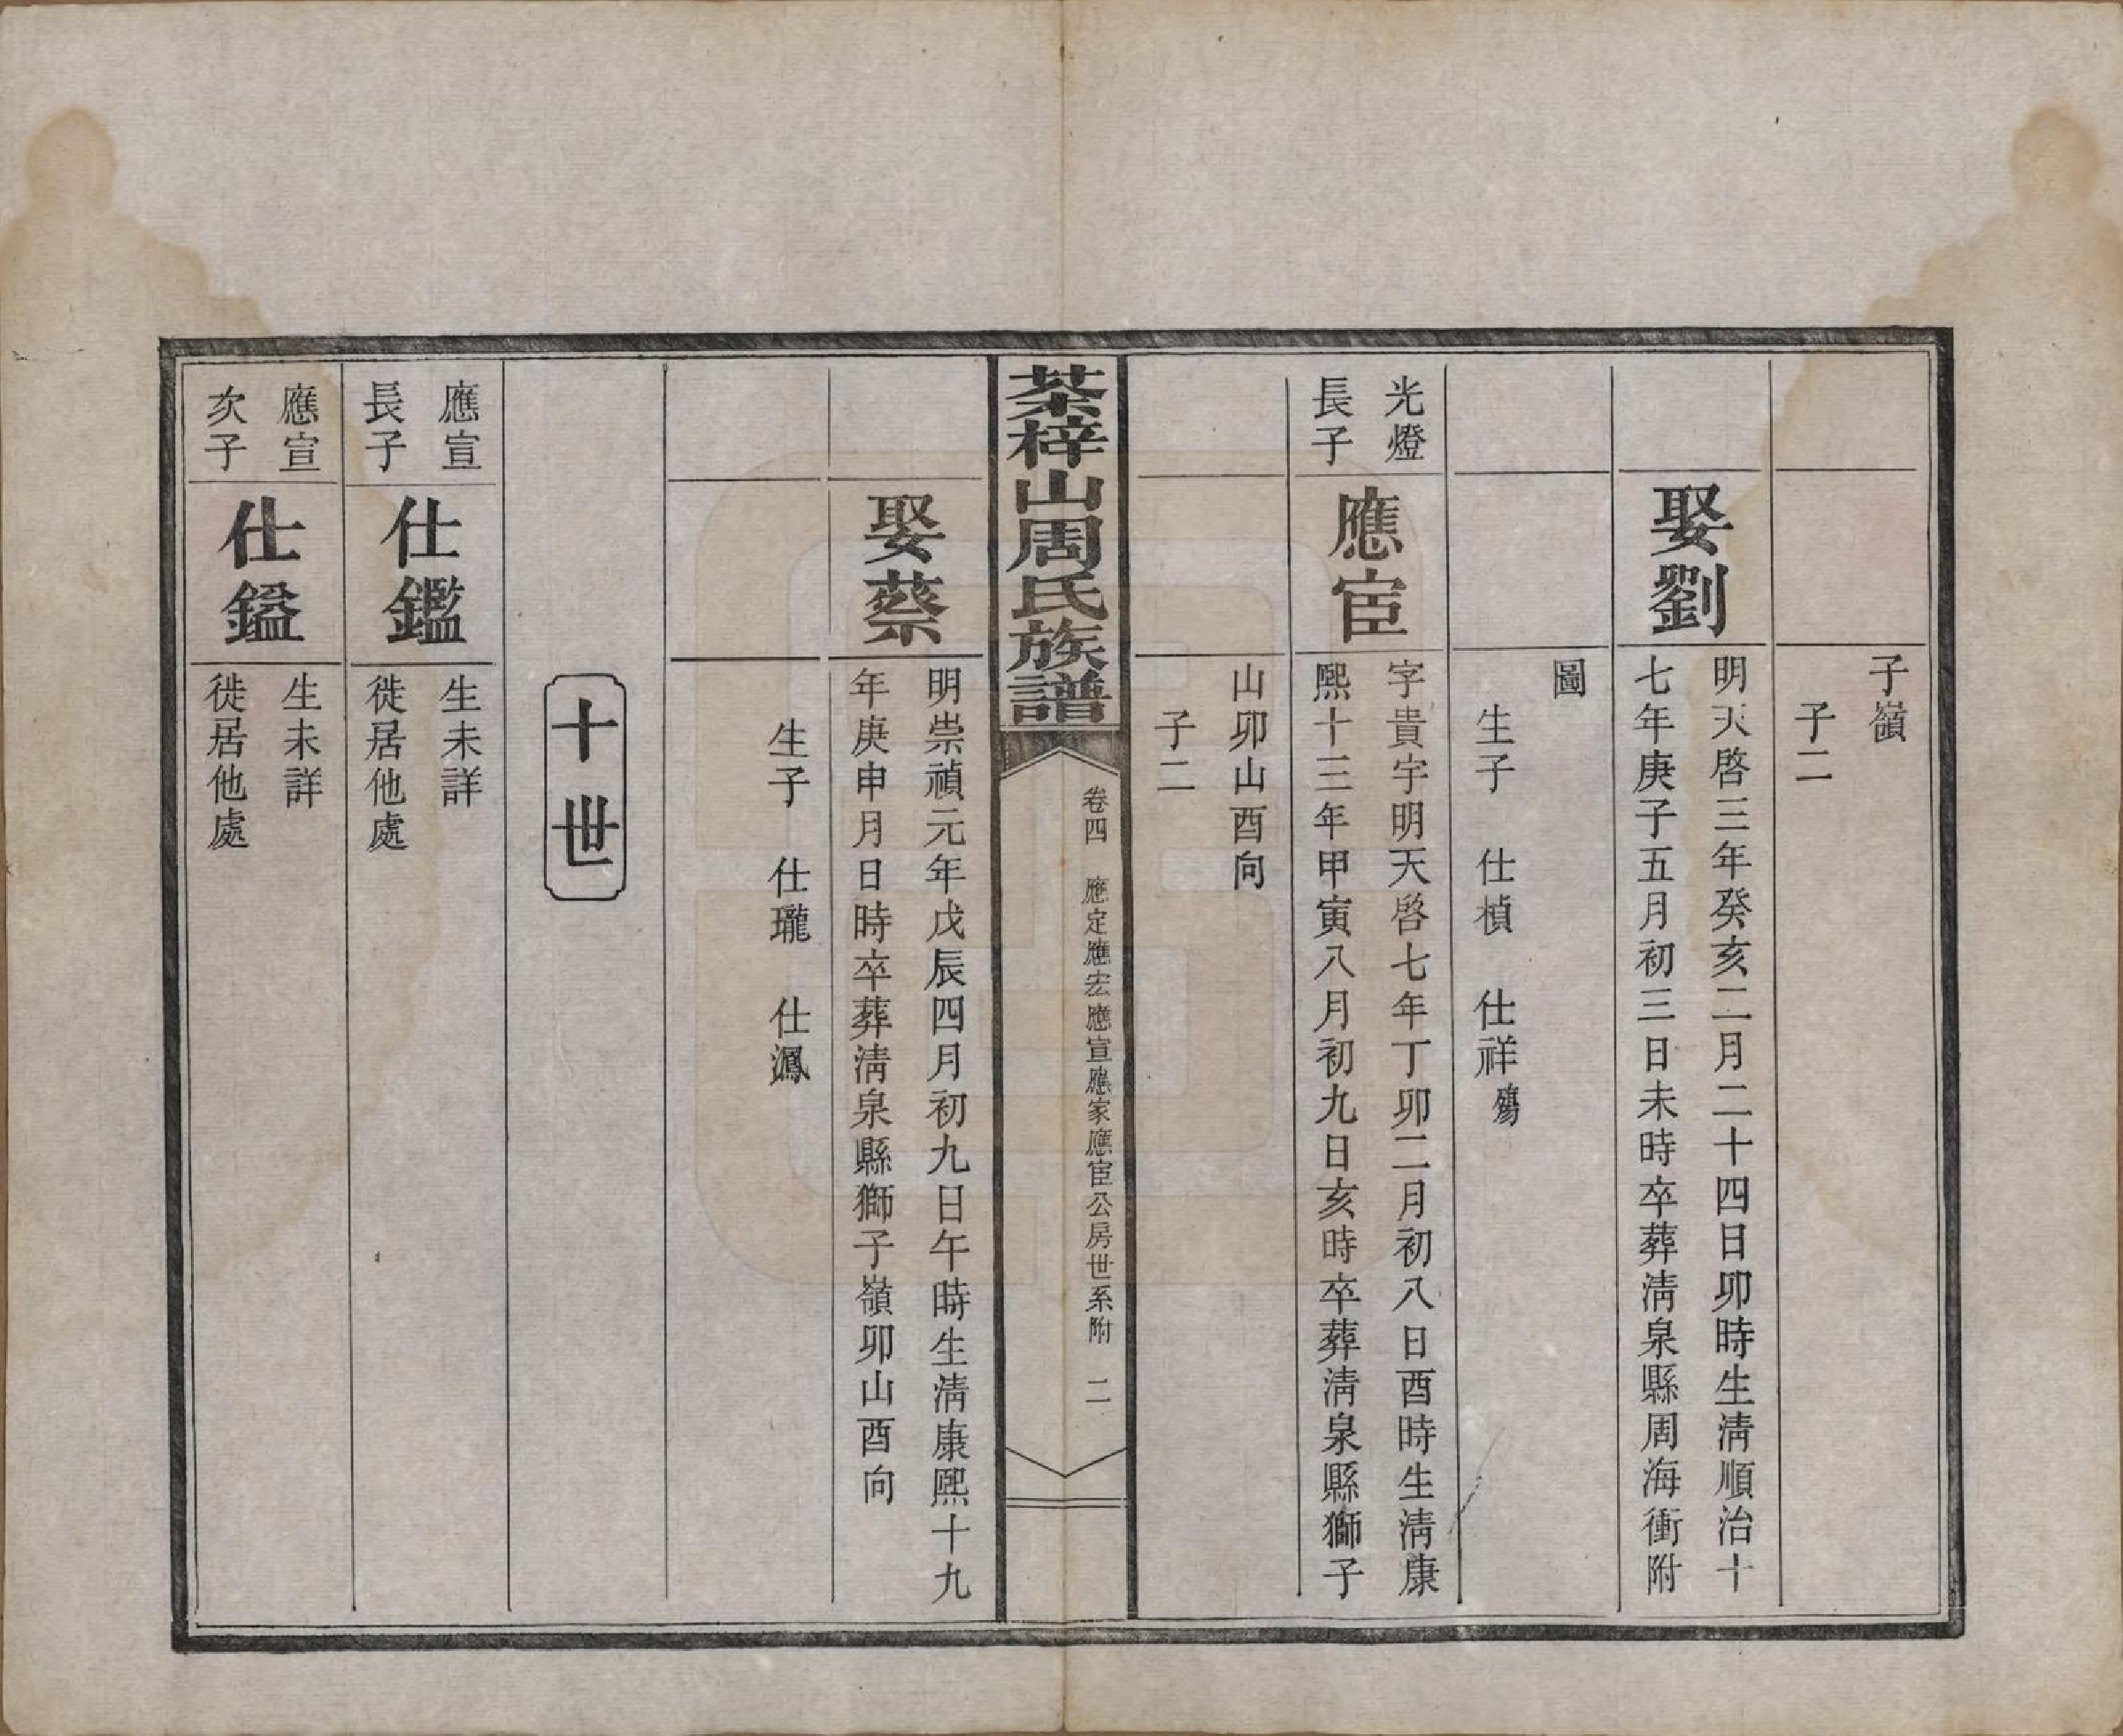 子嶺
子二
娶劉
明天啓三年癸亥二月二十四日卯時生淸順治十
七年庚子五月初三日未時卒葬淸泉縣周海衝附
圖
生子　仕楨　仕祥殤
光燈
長子
應宦
字貴宇明天啓七年丁卯二月初八日酉時生淸康
熙十三年甲寅八月初九日亥時卒葬淸泉縣獅子
山卯山酉向
子二
茶梓山周氏族譜
卷四　應定應宏應宣應家應宦公房世系附　二
娶蔡
明崇禎元年戊辰四月初九日午時生淸康熙十九
年庚申月日時卒葬淸泉縣獅子嶺卯山酉向
生子　仕瓏　仕鳳
十世
應宣
長子
仕鑑
生未詳
徙居他處
應宣
次子
仕鎰
生未詳
徙居他處